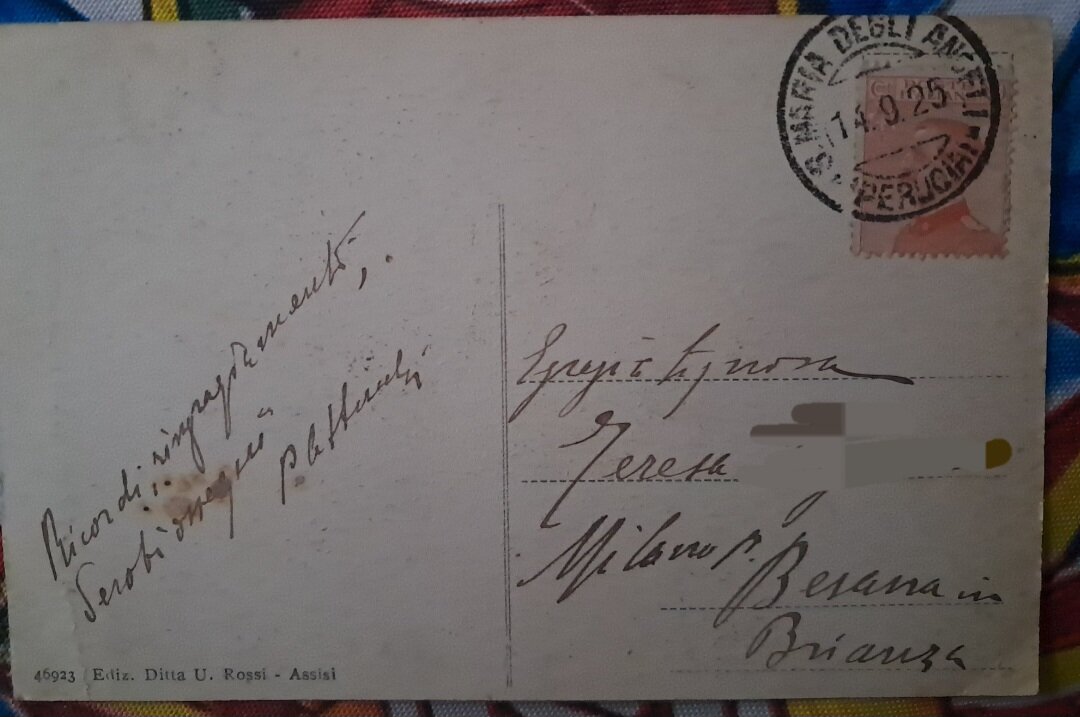 S. MARIA DEGLI ANGELI
14.9.25
(PERUGIA)
Ricordi, ringraziamenti,
ossequi
Egregia Signora
Teresa
Milano p. Besana in
Brianza
46923 Ediz. Ditta U. Rossi - Assisi